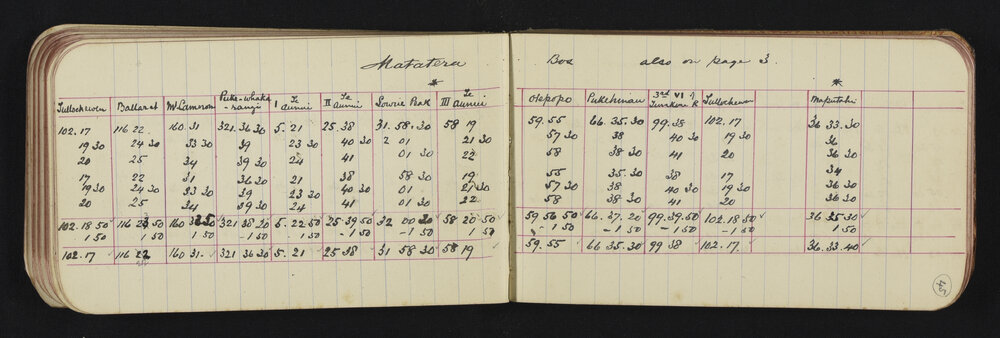 Matatera Bos also on page 3.
* *
Tullochewen Ballarat Mt Cameron Puke-whaka-rangi I Te Aunui II Te Aunui Lowrie Peak III Te Aunui Otepopo Pukehinau 3rd VI Tullochewen
102.17 116 22 160.31 321.36 30 5.21 25.38 31.58.30 58 19 59.55 66.35.30 99.38 102.17 36 33.30
19 30 24 30 33 30 39 23 30 40 30 2 01 21 30 57 30 38 40 30 19 30 36
20 25 34 39 30 24 41 01 30 22 58 38 30 41 20 36 30
17 22 31 36 30 21 38 58 30 19 55 35.30 38 17 34
19 30 24 30 33 30 39 23 30 40 30 01 21 30 57 30 38 40 30 19 30 36 30
20 25 34 39 30 24 41 01 30 22 58 38 30 41 20 36 30
102.18 50 116 23 50 160 32 50 321 38 20 5.22 50 25.39 50 32 00 20 58 20 50 59 56 50 66.37.20 99.39.50 102.18 50 36 35 30
1 50 1 50 1 50 -1 50 -1 50 -1 50 -1 50 -1 50 -1 50 -1 50 -1 50 -1 50 1 50
102.17 116 22 160 31. 321 36 30 5.21 25 38 31 58 30 58 19 59.55 66 35.30 99 38 102.17. 36.33.40
45